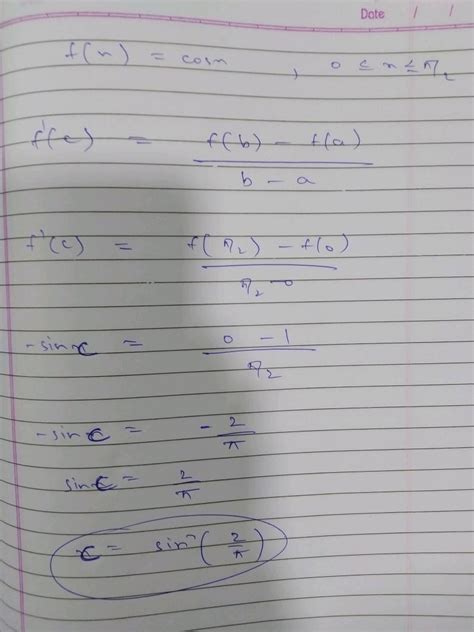 Date / /
f(x) = cosx , 0 ≤ x ≤ π/2
f'(c) = f(b) - f(a) / b - a
f'(c) = f(π/2) - f(0) / π/2 - 0
-sin c = 0 - 1 / π/2
-sin c = - 2/π
sin c = 2/π
c = sin⁻ (2/π)